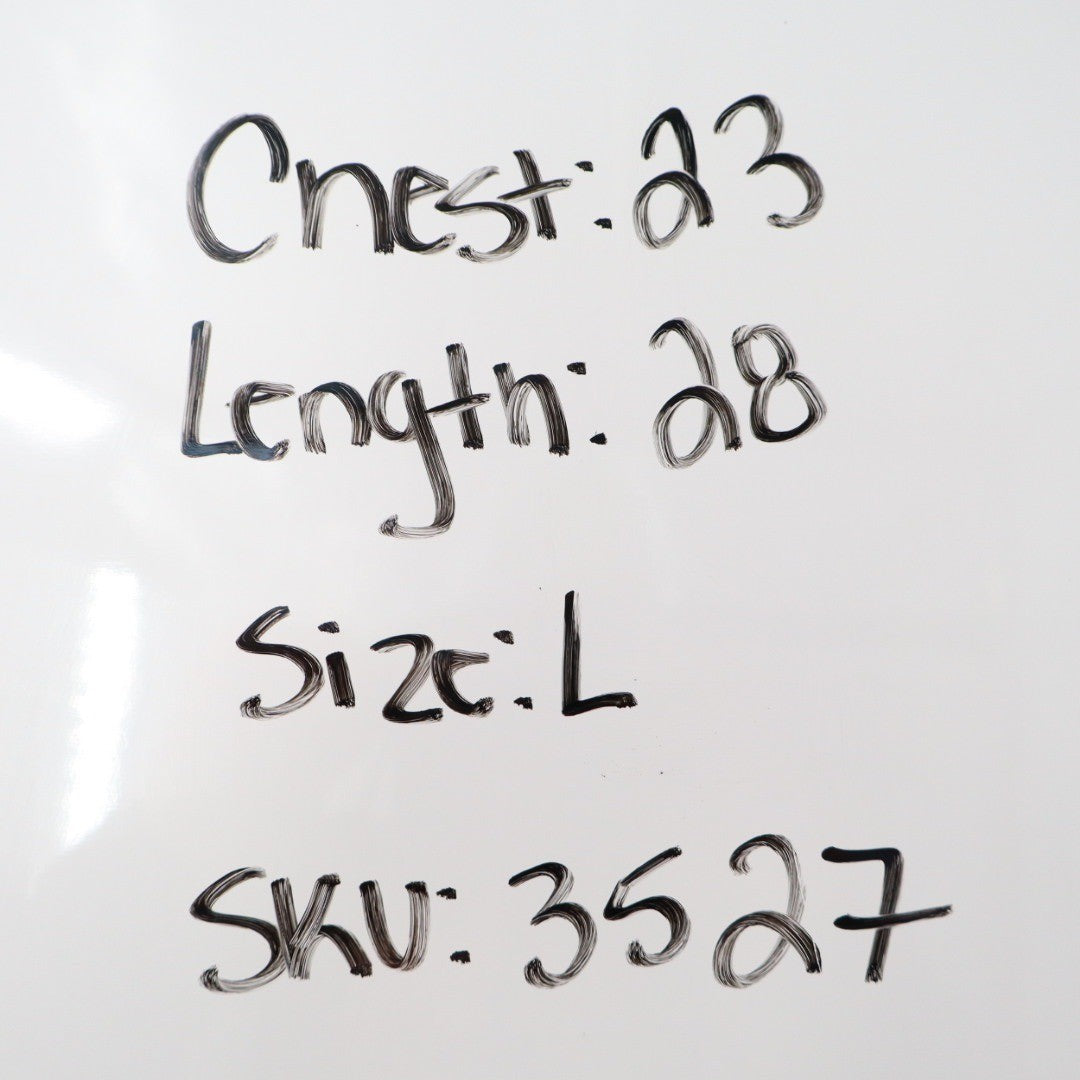 Chest: 23
Length: 28
Size: L
SKU: 3527